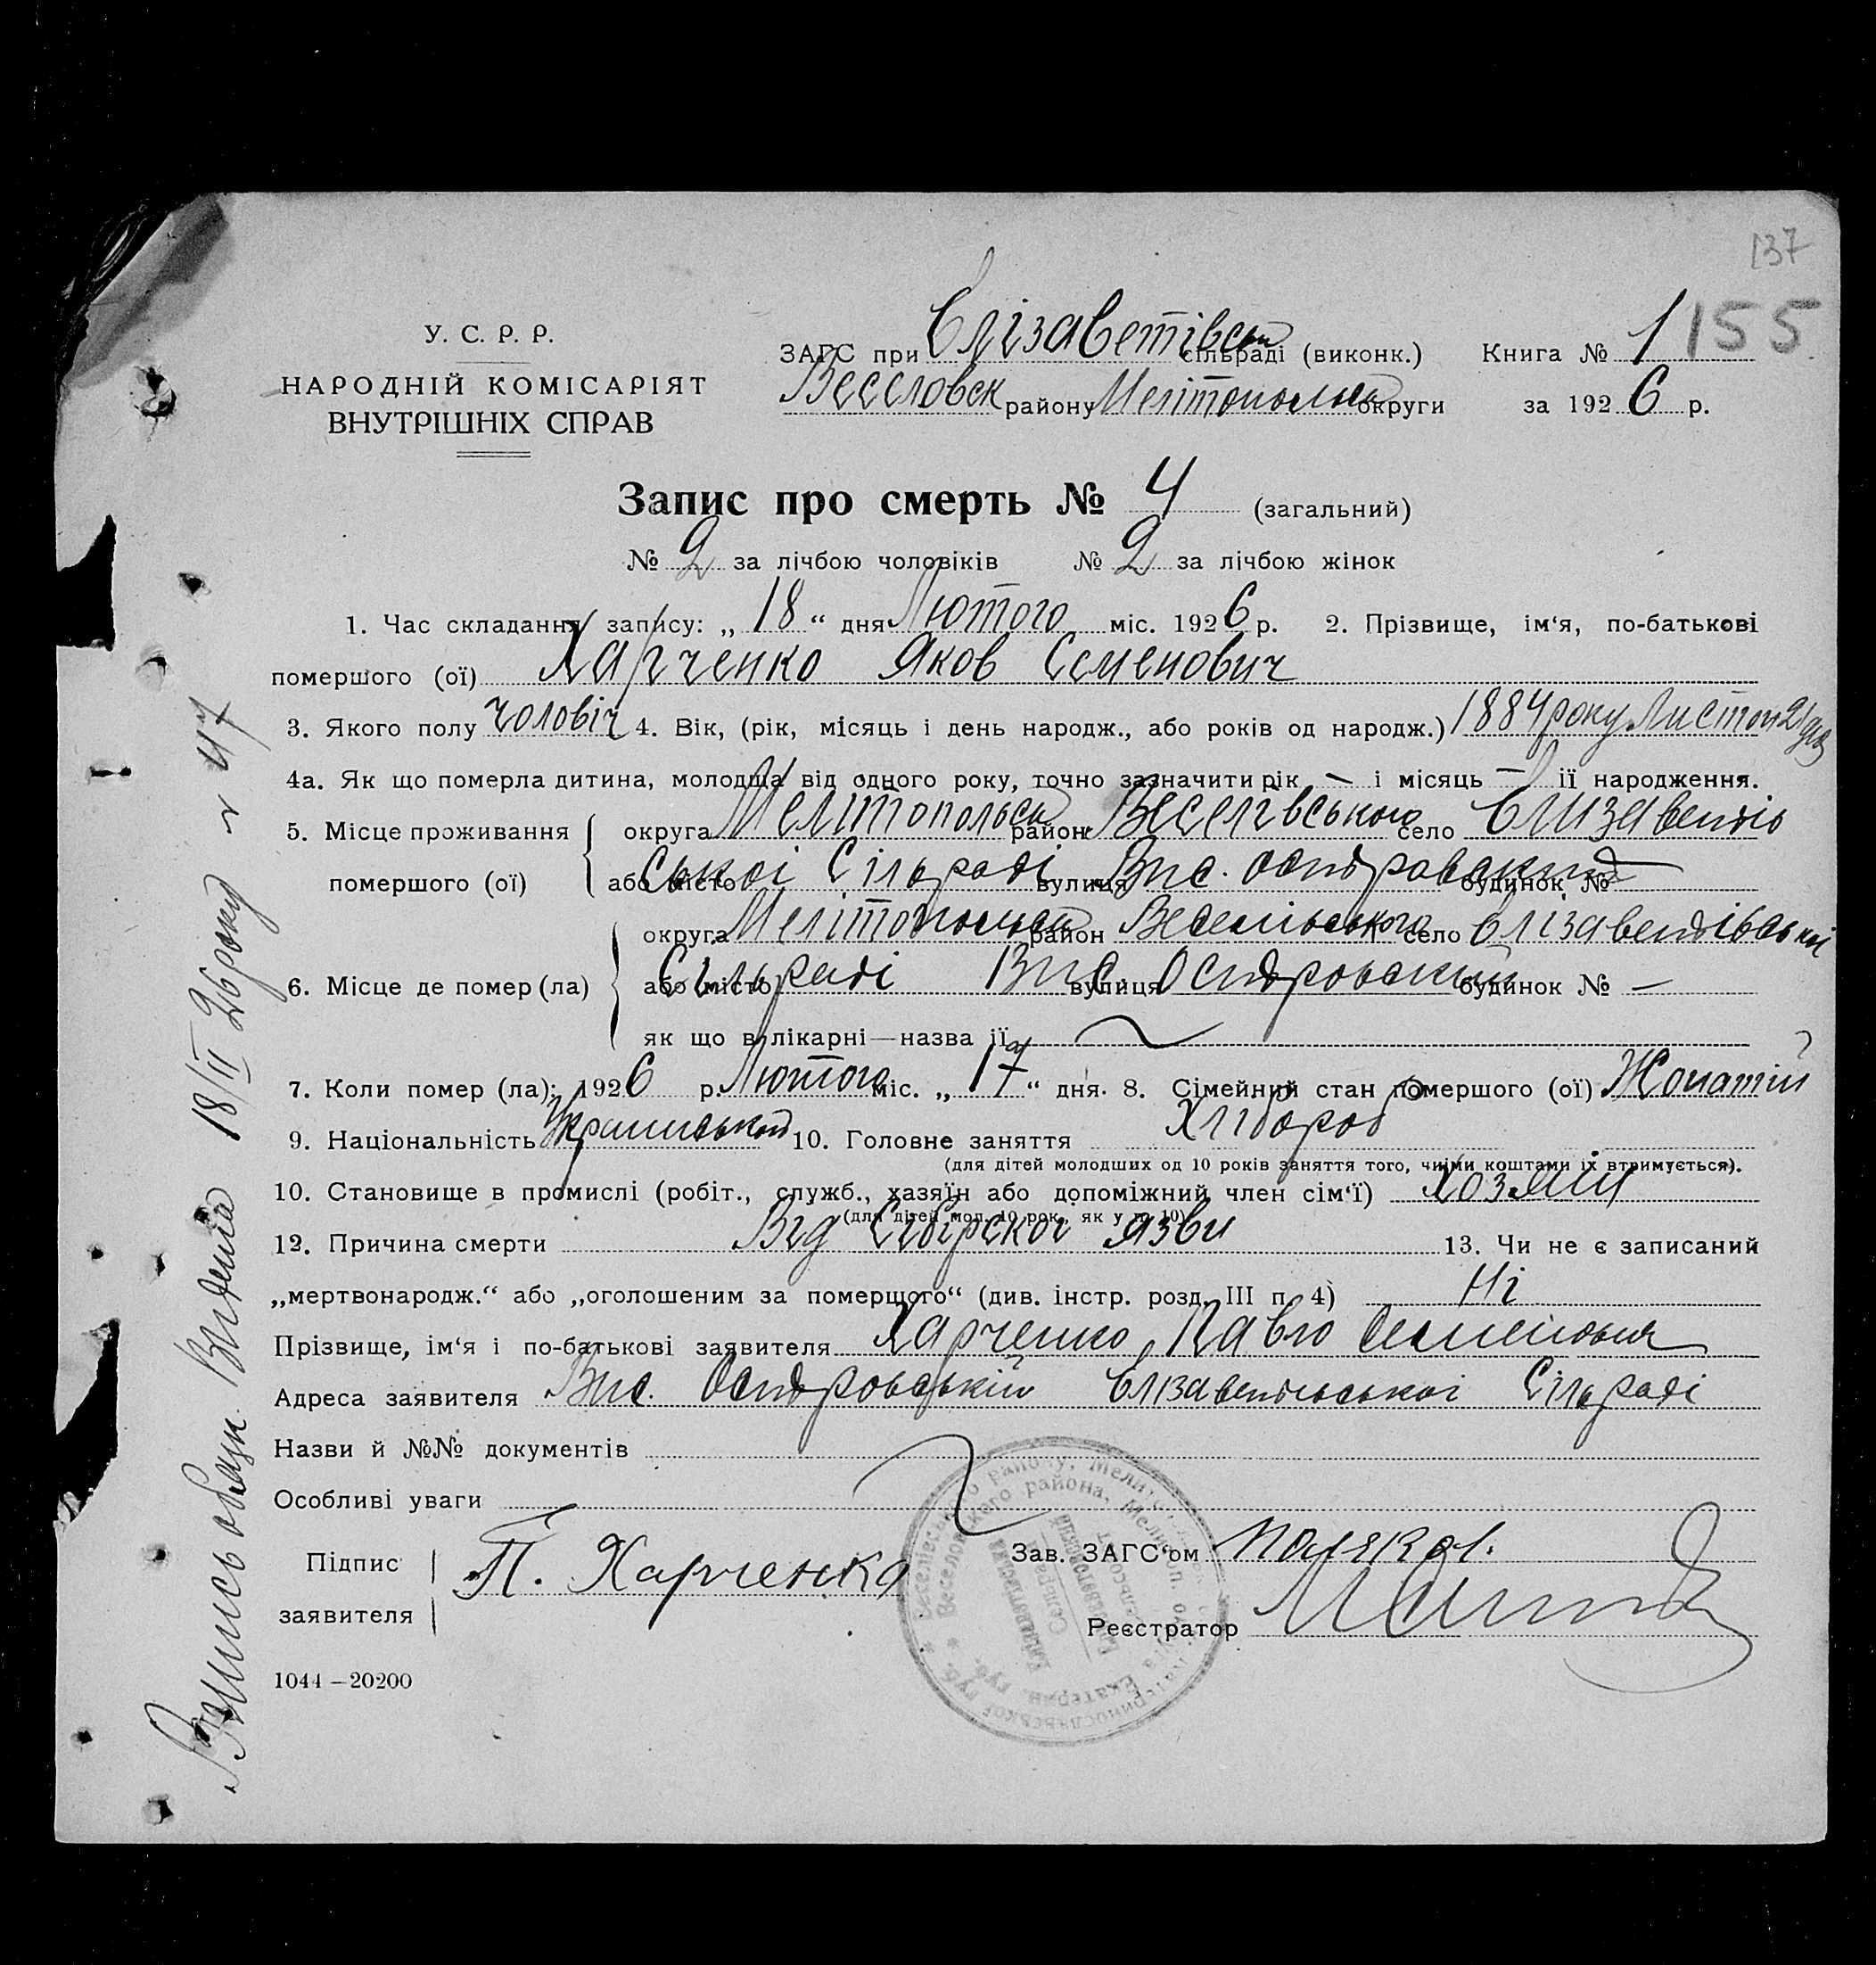 137
155
У. С. Р. Р.
НАРОДНІЙ КОМІСАРІЯТ
ВНУТРІШНІХ СПРАВ
ЗАГС при Єлізаветівськ сільраді (виконк.) Книга № 1
Веселовск району Мелітопольск округи за 1926 р.
Запис про смерть № 4 (загальний)
№ 2 за лічбою чоловіків № 2 за лічбою жінок
1. Час складання запису: „18“ дня Лютого міс. 1926 р. 2. Прізвище, ім‘я, по-батькові
помершого (ої) Харченко Яков Семенович
3. Якого полу чоловіч 4. Вік, (рік, місяць і день народж., або років од народж.) 1884 року Листоп 21 дня
4а. Як що померла дитина, молодща від одного року, точно зазначити рік — і місяць — її народження.
5. Місце проживання округа Мелітопольськ район Веселівського село Єлизаветів
помершого (ої) або місто ської Сільраді вулиця Вис. Островский будинок №
округа Мелітопольськ район Веселівського село Єлізаветівської
6. Місце де помер (ла) або місто Сільраді вулиця Вис. Островский будинок № —
як що в лікарні—назва її
7. Коли помер (ла): 1926 р. Лютого міс. „17“ дня. 8. Сімейний стан помершого (ої) Жонатий
9. Національність Украинський 10. Головне заняття Хлібороб
(для дітей молодших од 10 років заняття того, чиїми коштами їх втримується).
10. Становище в промислі (робіт., служб., хазяїн або допоміжний член сім‘ї) Хозяин
(для дітей мол. 10 рок., як у п. 10)
12. Причина смерти Від Сибірскої язви 13. Чи не є записаний
„мертвонародж.“ або „оголошеним за померщого“ (див. інстр. розд. III п. 4) Ні
Прізвище, ім‘я і по-батькові заявителя Харченко Павло Семенович
Адреса заявителя Вис. Островський Єлізаветівської Сільраді
Назви й №№ документів
Особливі уваги
Підпис заявителя П. Харченко
Зав. ЗАГС‘ом
Реєстратор
1044—20200
18/II 26 року № 47